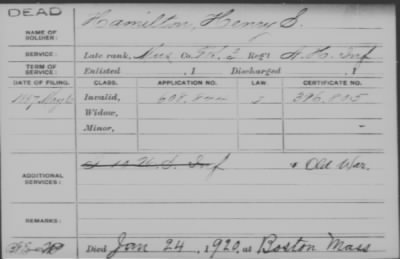 DEAD
NAME OF SOLDIER: Hamilton, Henry S.
SERVICE: Late rank, Mus Co. Reg't N.H. Inf
TERM OF SERVICE: Enlisted , 1 Discharged , 1
DATE OF FILING. CLASS. APPLICATION NO. LAW. CERTIFICATE NO.
1887 May Invalid, 396.805
Widow,
Minor, -
ADDITIONAL SERVICES: U.S. Inf & Old War.
REMARKS:
Died Jan 24, 1920, at Boston Mass